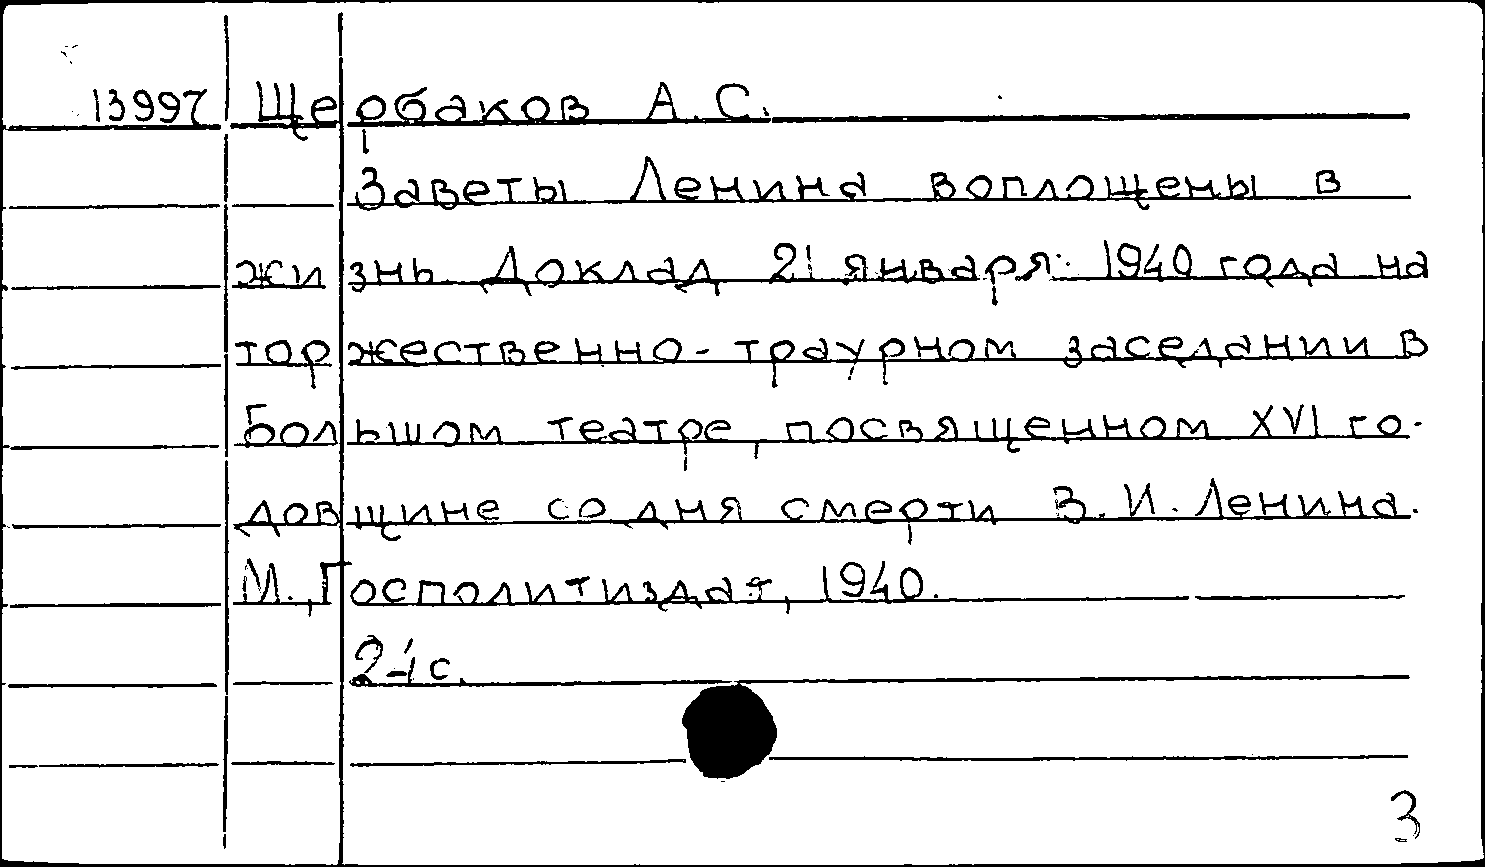 13997 Щербаков А.С.
Заветы Ленина воплощены в
жизнь. Доклад 21 января 1940 года на
торжественно-траурном заседании в
Большом театре, посвященном XVI го-
довщине со дня смерти В.И. Ленина.
М., Госполитиздат, 1940.
24 с.
3